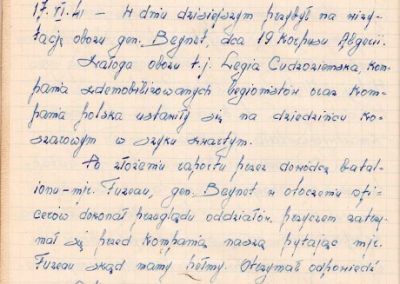 17.VI.41 – W dniu dzisiejszym przybył na wizy-
tację obozu gen. Beynet, dca 19 Korpusu Algerii.
Załoga obozu t.j. Legia Cudzoziemska, kom-
pania zdemobilizowanych legionistów oraz kom-
pania polska ustawiły się na dziedzińcu ko-
szarowym w szyku zwartym.
Po złożeniu raportu przez dowódcę batal-
ionu – mjr. Fuzeau, gen. Beynet w otoczeniu ofi-
cerów dokonał przeglądu oddziałów, przyczem zatrzy-
mał się przed kompanią naszą pytając mjr.
Fuzeau skąd mamy hełmy. Otrzymał odpowiedź